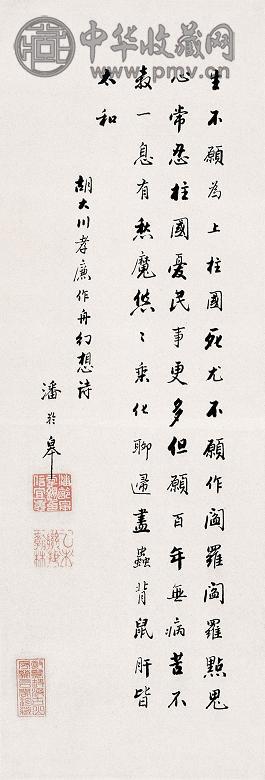 中华收藏网
生不願為上柱國死尤不願作閻羅閻羅點鬼
心常忍柱國憂民事更多但願百年無病苦不
教一息有愁魔悠〻乘化聊歸盡蟲背鼠肝皆
太和
胡大川孝廉作舟幻想詩
潘齡皋